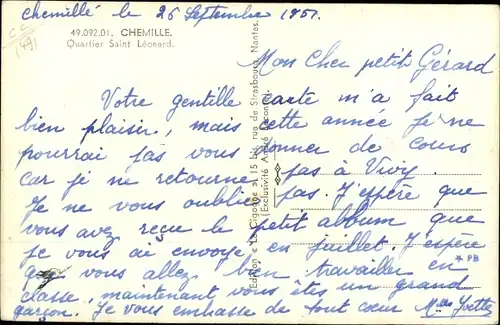 Chemillé le 26 Septembre 1951.
49.092.01. CHEMILLE.
Quartier Saint Léonard.
(49)
Mon Cher petit Gérard
Votre gentille carte m'a fait
bien plaisir, mais cette année je ne
pourrai pas vous donner de cours
car je ne retourne pas à Vivy.
Je ne vous oublie pas. J'espère que
vous avez reçu le petit album que
je vous ai envoyé en juillet. J'espère
que vous allez bien travailler en
classe, maintenant vous êtes un grand
garçon. Je vous embrasse de tout coeur Mlle Yvette
* PB
Edition « La Cigogne » 15 bis, rue de Strasbourg Nantes.
(Exclusivité